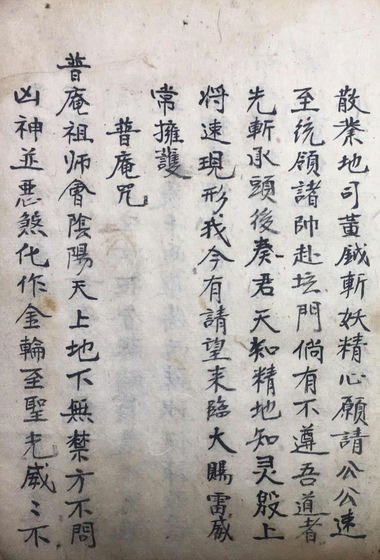 散業地司黃鉞斬妖精心願請公公速
至統領諸帥赴坛門倘有不遵吾道者
先斬承頭後奏君天知精地知灵殷上
将速現形我今有請望来臨大賜雷威
常擁護
普庵咒
普庵祖师會陰陽天上地下無禁方不問
凶神並惡煞化作金輪至聖光威〻不